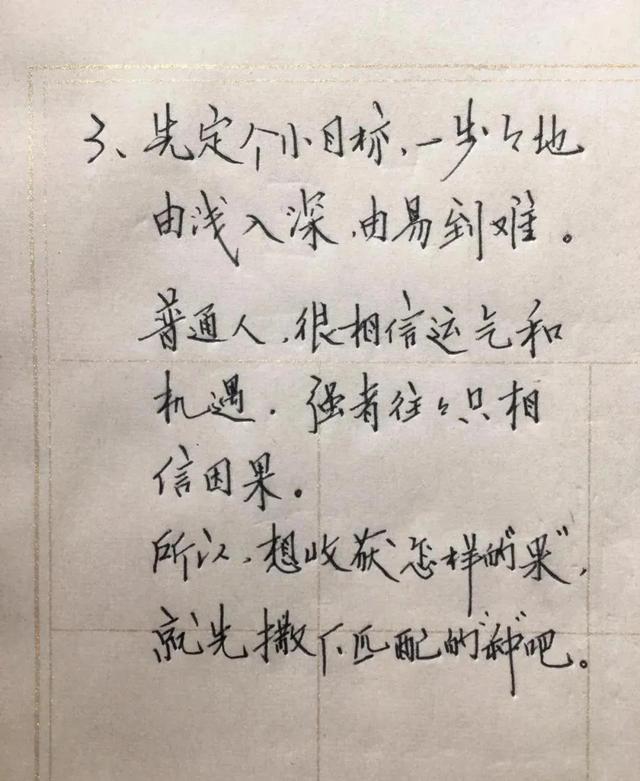 3、先定个小目标,一步々地
由浅入深,由易到难。
普通人,很相信运气和
机遇.强者往々只相
信因果。
所以,想收获怎样的"果",
就先撒下匹配的"种"吧。